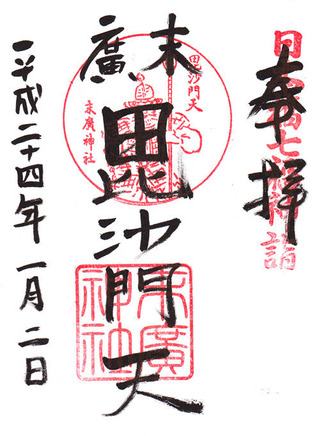 奉拝
日本橋七福神詣
末廣
毘沙門天
毘沙門天
末廣神社
末廣神社
平成二十四年一月二日